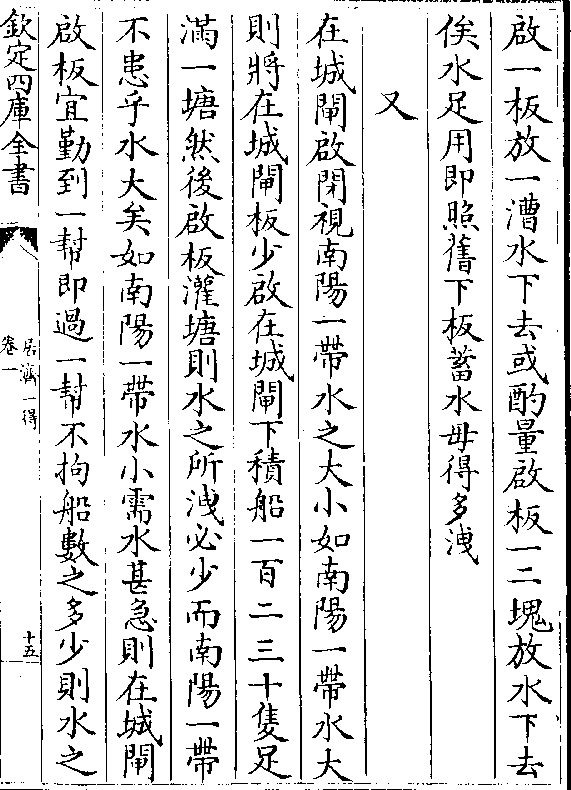 啟一板放一漕水下去或酌量啟板一二塊放水下去
俟水足用即照舊下板蓄水毋得多洩
又
在城閘啟閉視南陽一帶水之大小如南陽一帶水大
則將在城閘板少啟在城閘下積船一百二三十隻足
滿一塘然後啟板灌塘則水之所洩必少而南陽一帶
不患乎水大矣如南陽一帶水小需水甚急則在城閘
啟板宜勤到一幫即過一幫不拘船數之多少則水之
欽定四庫全書
居濟一得
卷一
十五